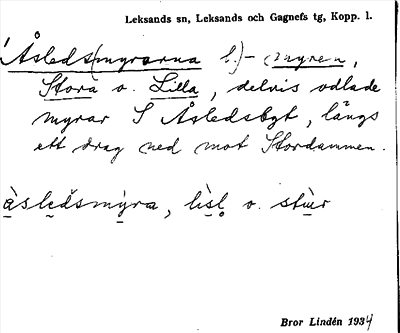 Leksands sn, Leksands och Gagnefs tg, Kopp. l.
Åsleds(myrarna l.) - myren,
Stora o. Lilla, delvis odlade
myrar S Åsledsbyt, längs
ett drag ned mot Stordammen.
àslèdsmỳra, lìsl o. stùr
Bror Lindén 1934